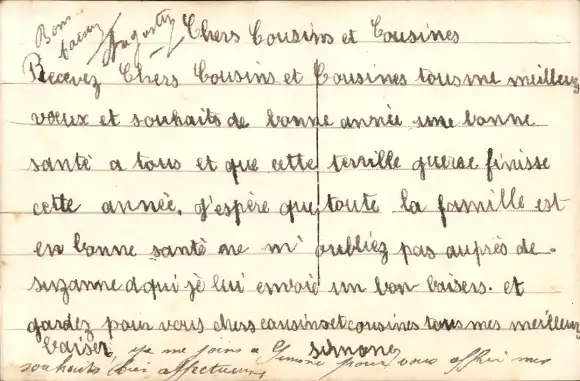 Bons
baisers
Augustin
Chers Cousins et Cousines
Recevez Chers Cousins et Cousines tous me meilleurs
vœux et souhaits de bonne année une bonne
santé a tous et que cette terrille guerse finisse
cette année, j'espère que toute la famille est
en bonne santè ne m'oubliez pas auprès de
suzanne a qui jè lui envoie un bon baisers. et
gardez pour vous chers causins et cousines tous mes meilleurs
baiser simone
je me joins a Simone pour vous offrir mes
souhaits bien affectueux